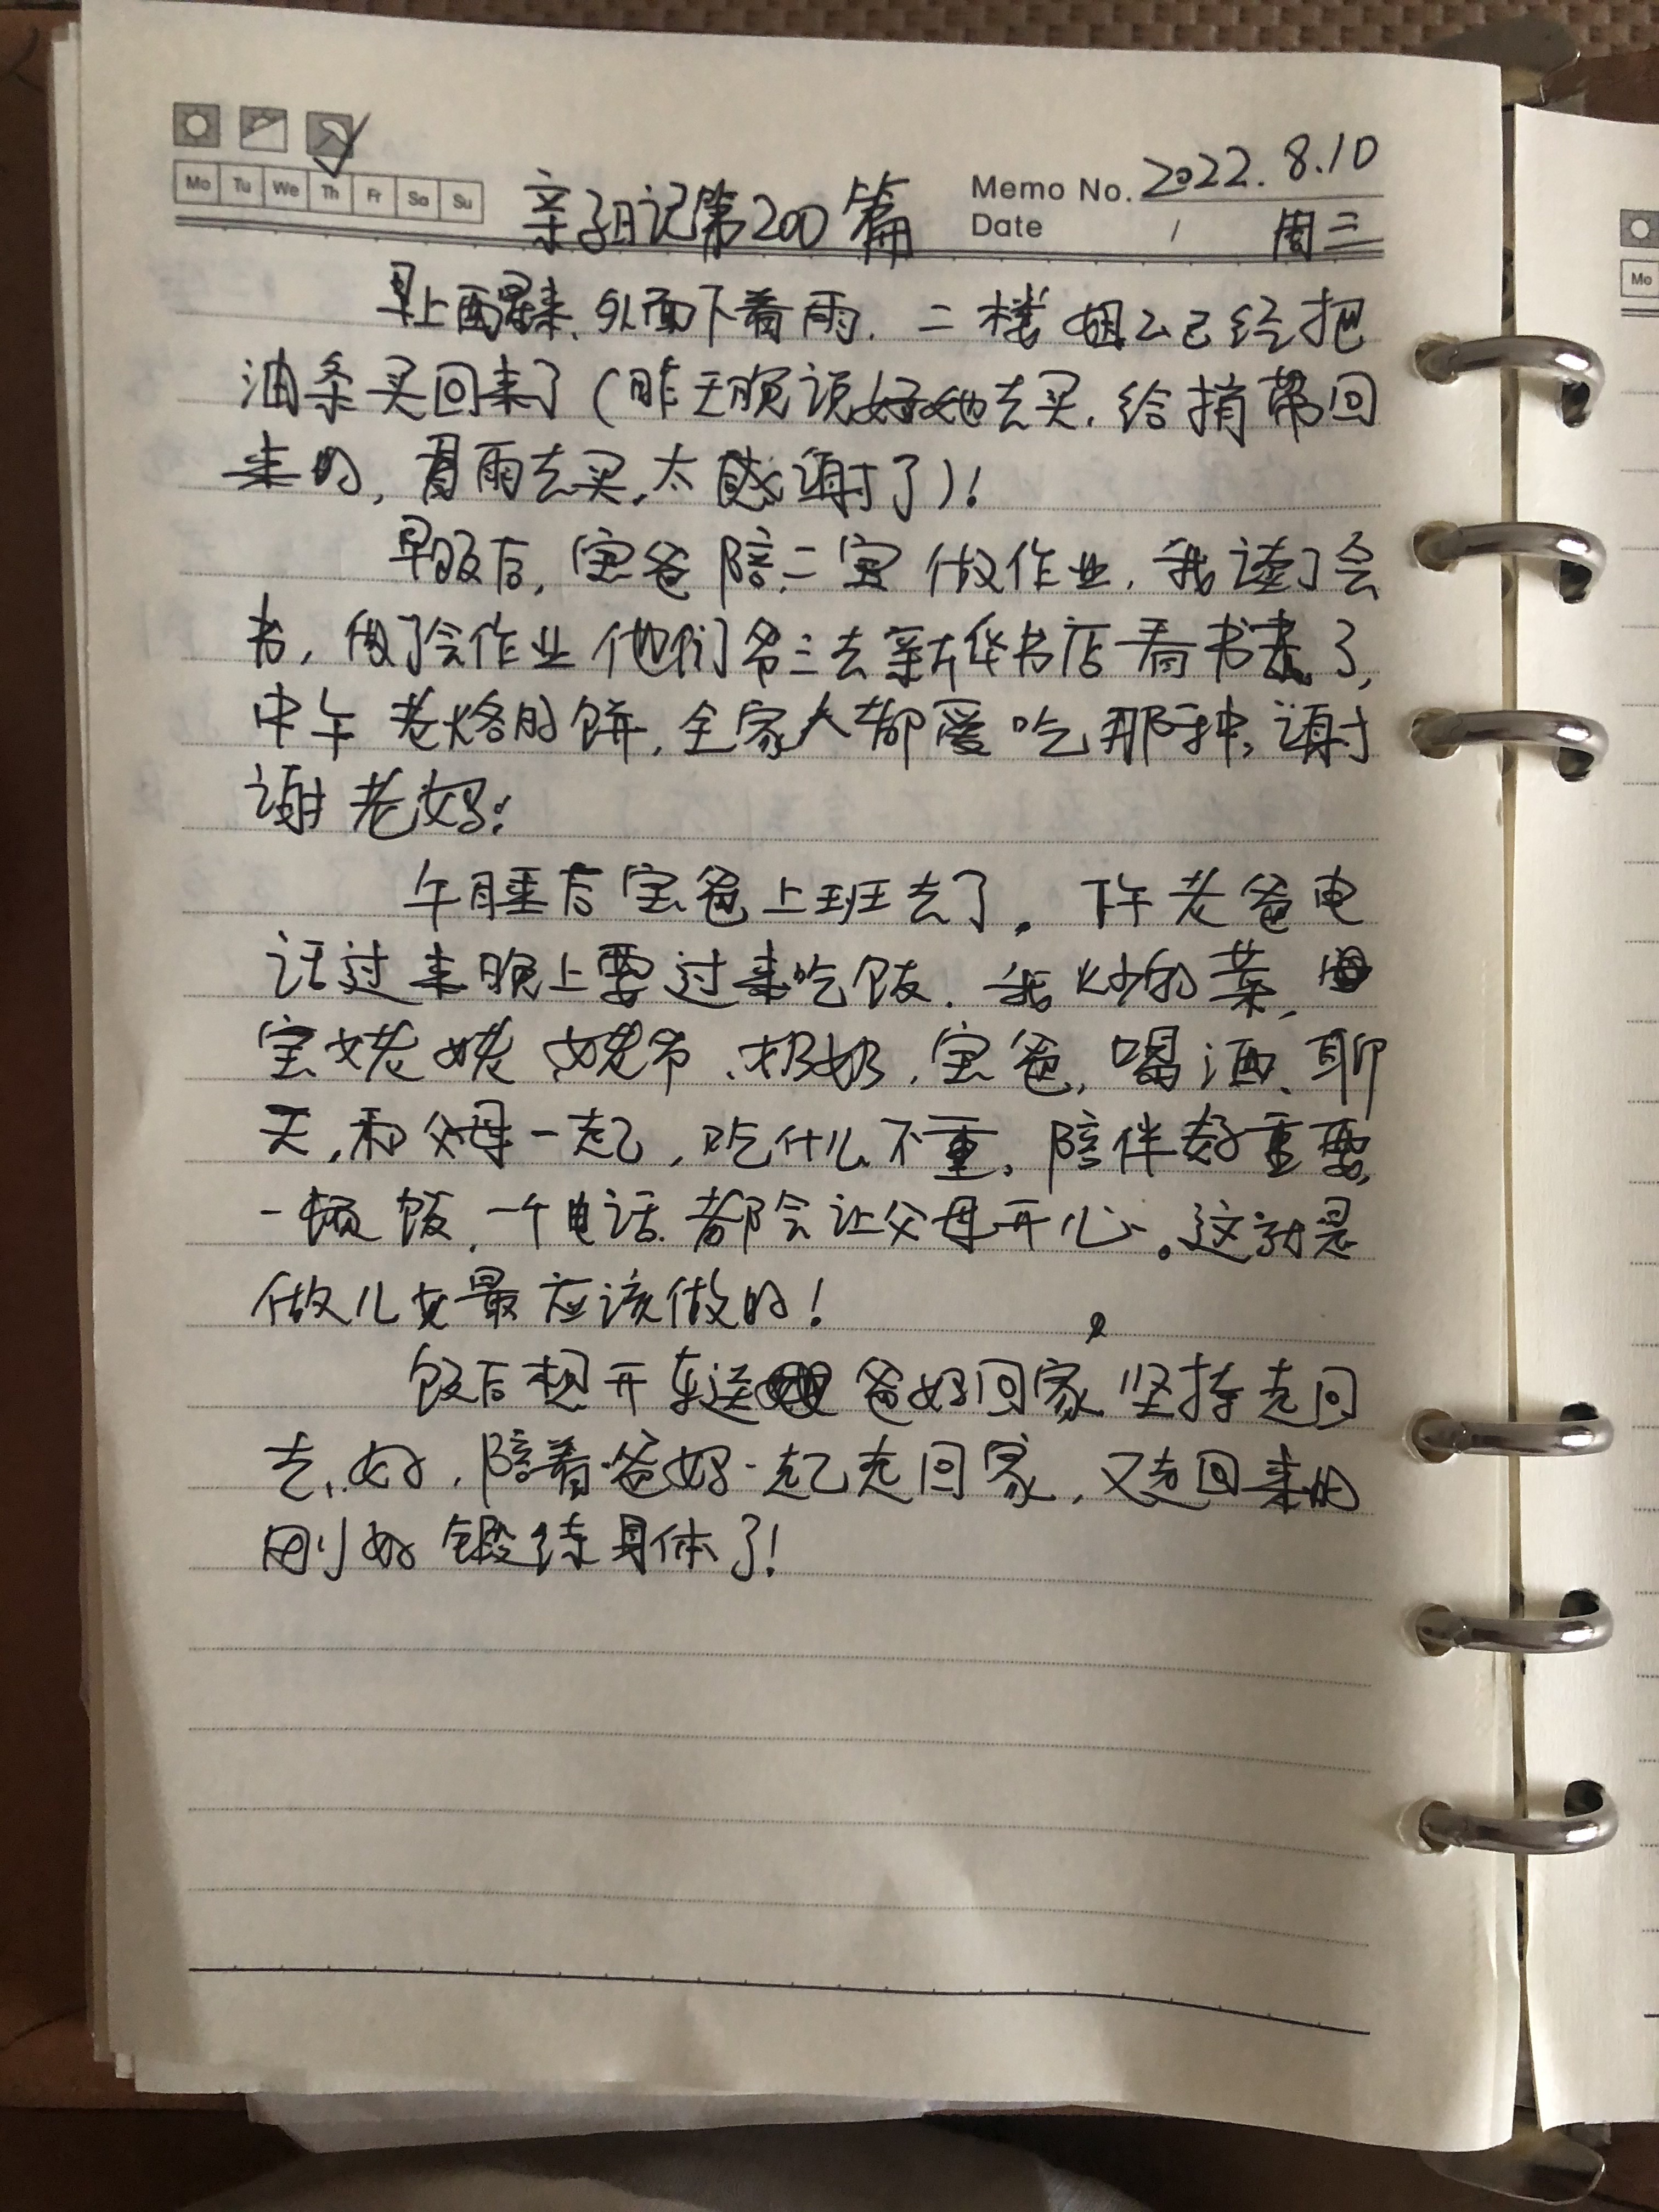 Mo Tu We Th Fr Sa Su
Memo No. 2022.8.10
亲子日记第200篇
Date / 周三
早上醒来,外面下着雨.二楼 已经把
油条买回来了(昨天晚说好她去买,给捎带回
来的,冒雨去买,太感谢了)!
早饭后,宝爸陪二宝做作业,我读了会
书,做了会作业他们爷三去新华书店看书去了,
中午老烙的饼,全家人都爱吃那种,谢
谢老妈!
午睡后宝爸上班去了。下午老爸电
话过来晚上要过来吃饭.我炒的菜,
宝姥姥姥爷、奶奶,宝爸,喝酒、聊
天,和父母一起,吃什么不重,陪伴好重要,
一顿饭,一个电话.都会让父母开心。这就是
做儿女最应该做的!
饭后想开车送爸妈回家,坚持走回
去,好,陪着爸妈一起走回家,又走回来的
刚好锻炼身体了!
Mo